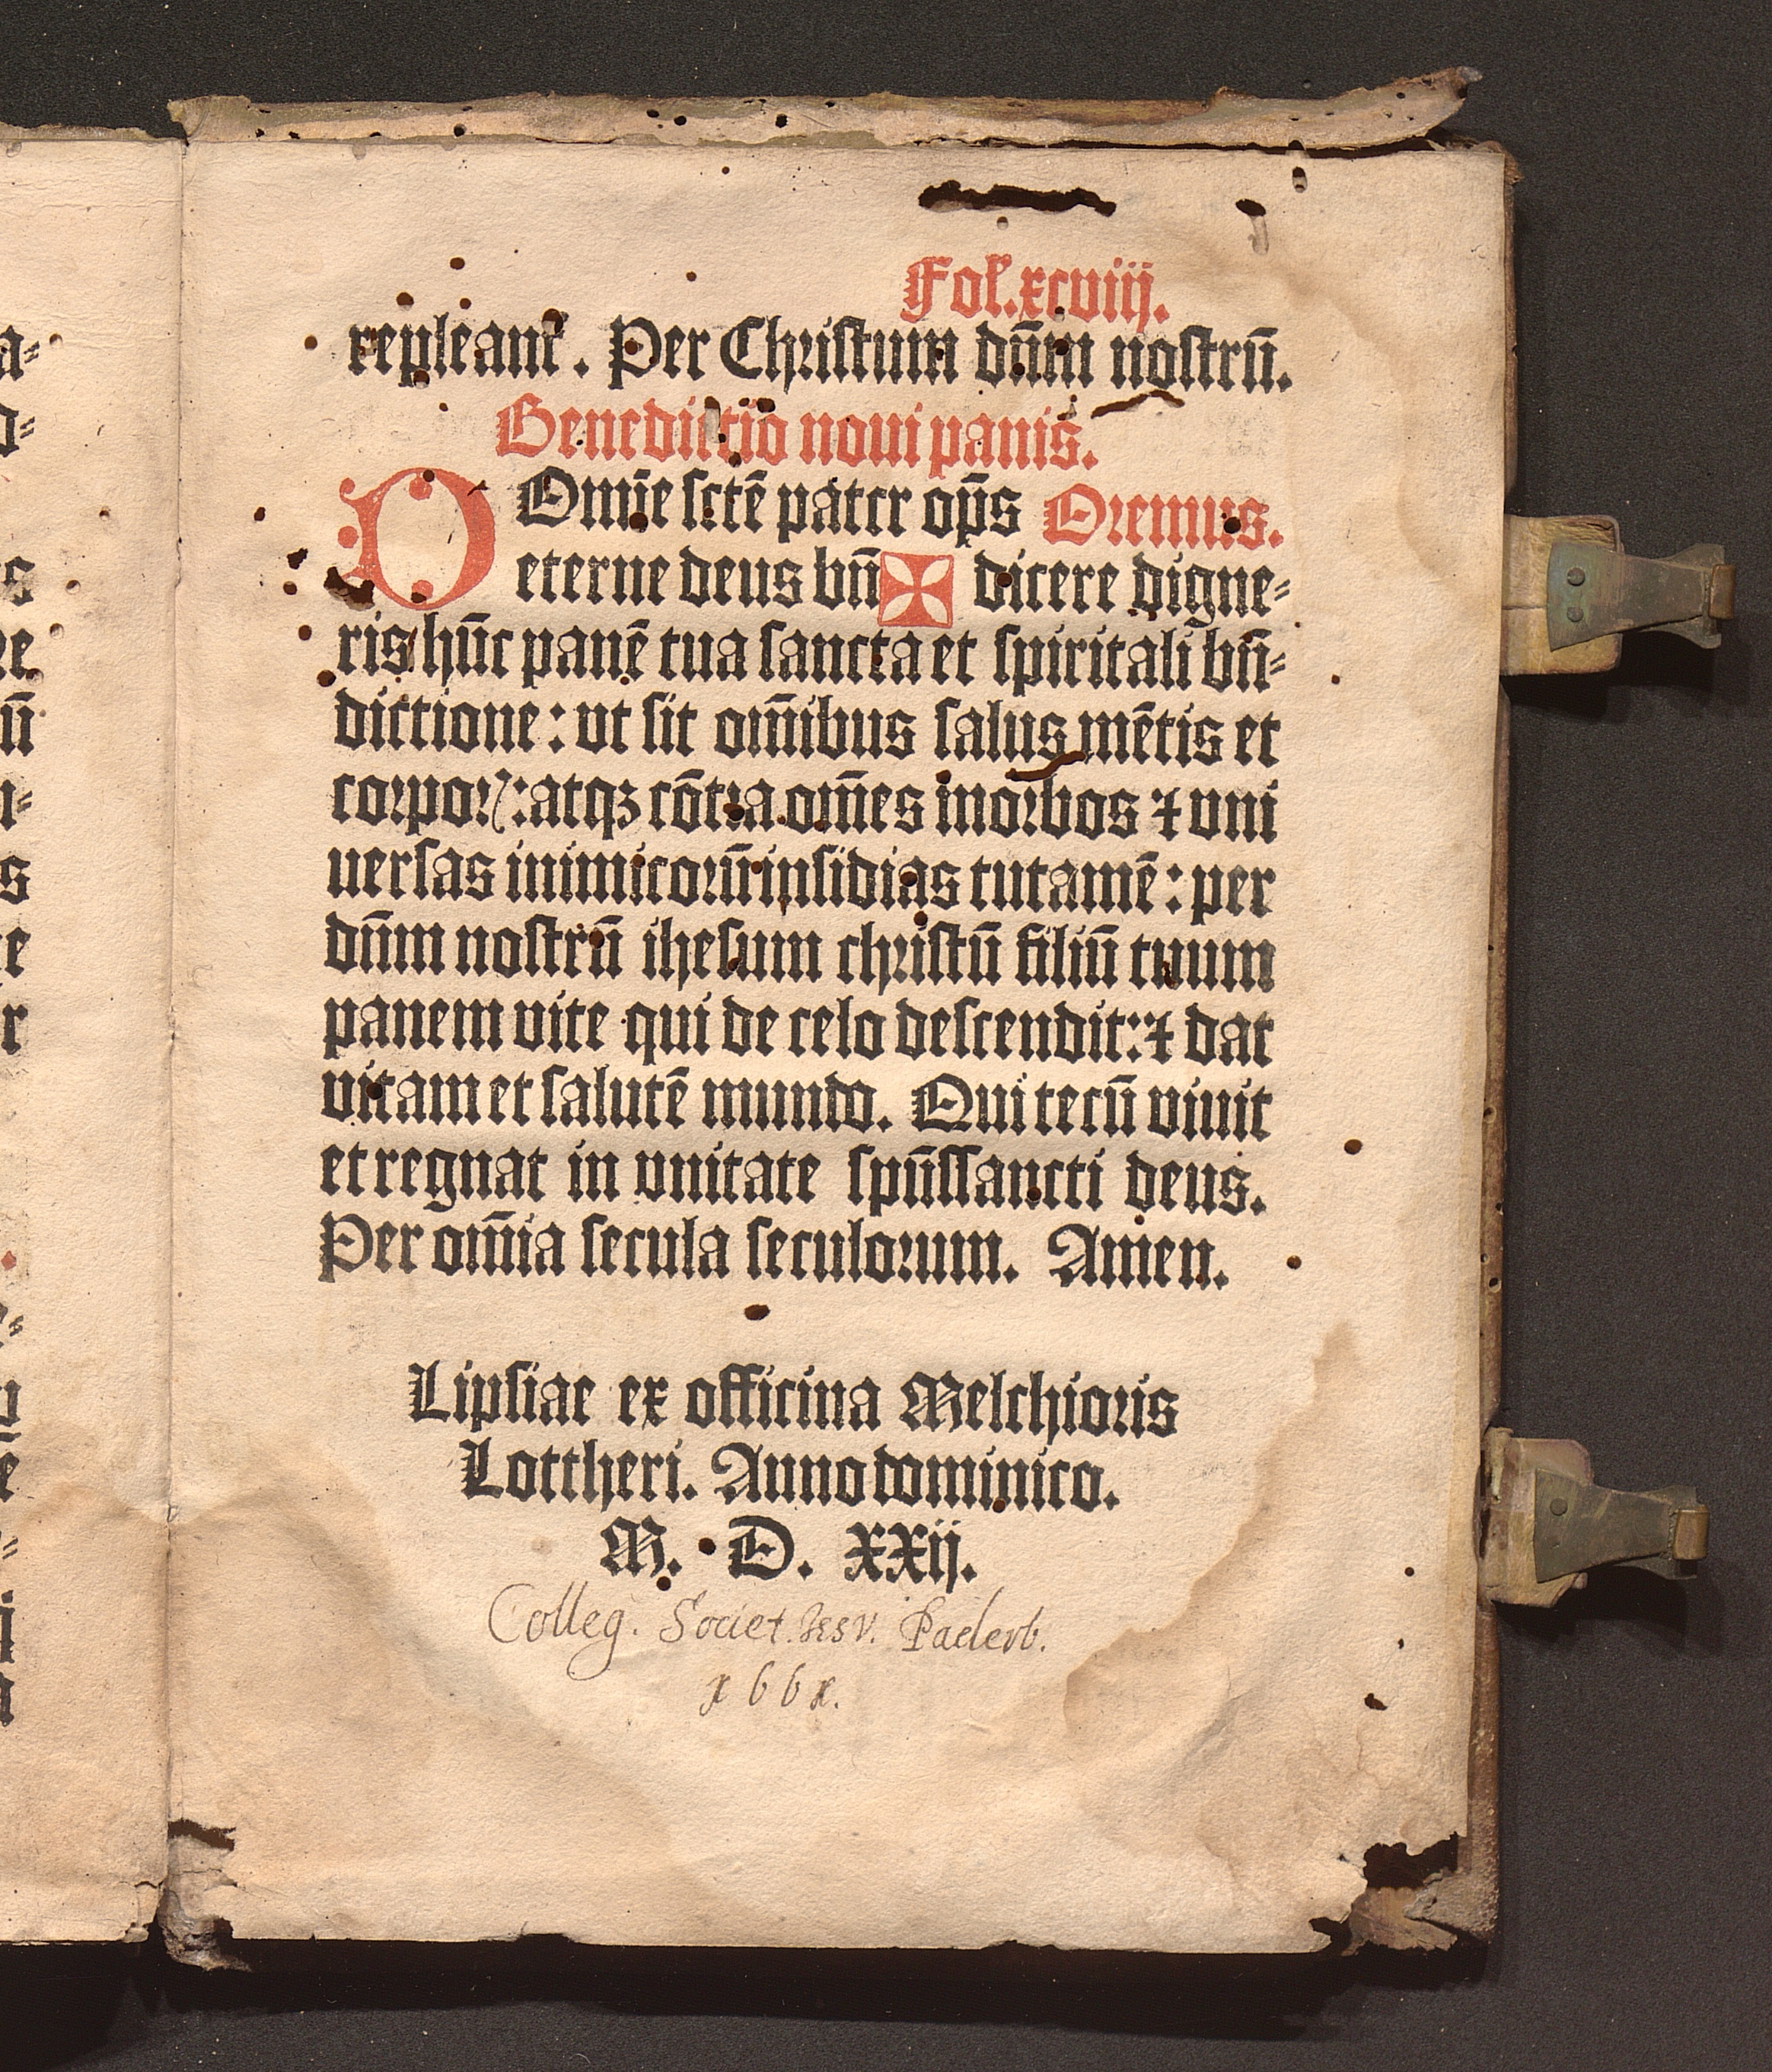 Fol. xcviij.
repleant᷑. Per Christum dn̄m nostrū.
Benedictio noui panis.
DOmīe sctē pater op̄s Oremus.
eterne deus bn̄ ✠ dicere digne⸗
ris hūc panē tua sancta et spiritali bn̄⸗
dictione: vt sit om̄ibus salus mētis et
corpoꝝ: atqꝫ cōtra om̄es morbos ⁊ vni
uersas inimicorū insidias tutamē: per
dn̄m nostrū ihesum christū filiū tuum
panem vite qui de celo descendit: ⁊ dat
vitam et salutē mundo. Qui tecū viuit
et regnat in vnitate spūssancti deus.
Per om̄ia secula seculorum. Amen.
Lipsiae ex officina Melchioris
Lottheri. Anno dominico.
M. D. XXij.
Colleg. Societ. Jesv. Paderb.
1661.